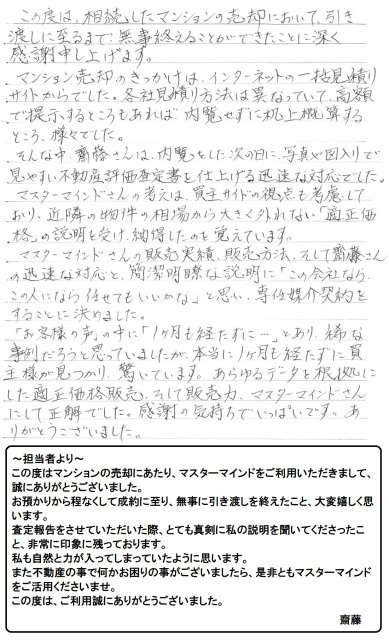 この度は、相続したマンションの売却において、引き
渡しに至るまで無事終えることができたことに深く
感謝申し上げます。
マンション売却のきっかけは、インターネットの一括見積り
サイトからでした。各社見積り方法は異なっていて、高額
で提示するところもあれば、内覧せずに机上概算する
ところ、様々でした。
そんな中、齋藤さんは、内覧をした次の日に、写真や図入りで
見やすい不動産評価査定書を仕上げる迅速な対応でした。
マスターマインドさんの考えは、買主サイドの視点も考慮して
おり、近隣の物件の相場から大きく外れない「適正価
格」の説明を受け、納得したのを覚えています。
マスターマインドさんの販売実績、販売方法、そして齋藤さん
の迅速な対応と、簡潔明瞭な説明に「この会社なら、
この人になら任せてもいいかな」と思い、専任媒介契約を
することに決めました。
「お客様の声」の中に「1ヶ月も経たずに…」とあり、稀な
事例だろうと思っていましたが、本当に1ヶ月も経たずに買
主様が見つかり、驚いています。あらゆるデータを根拠に
した適正価格販売、そして販売力、マスターマインドさん
にして正解でした。感謝の気持ちでいっぱいです。あ
りがとうございました。
～担当者より～
この度はマンションの売却にあたり、マスターマインドをご利用いただきまして、
誠にありがとうございました。
お預かりから程なくして成約に至り、無事に引き渡しを終えたこと、大変嬉しく思
います。
査定報告をさせていただいた際、とても真剣に私の説明を聞いてくださったこ
と、非常に印象に残っております。
私も自然と力が入ってしまっていたように思います。
また不動産の事で何かお困りの事がございましたら、是非ともマスターマインド
をご活用くださいませ。
この度は、ご利用誠にありがとうございました。
齋藤